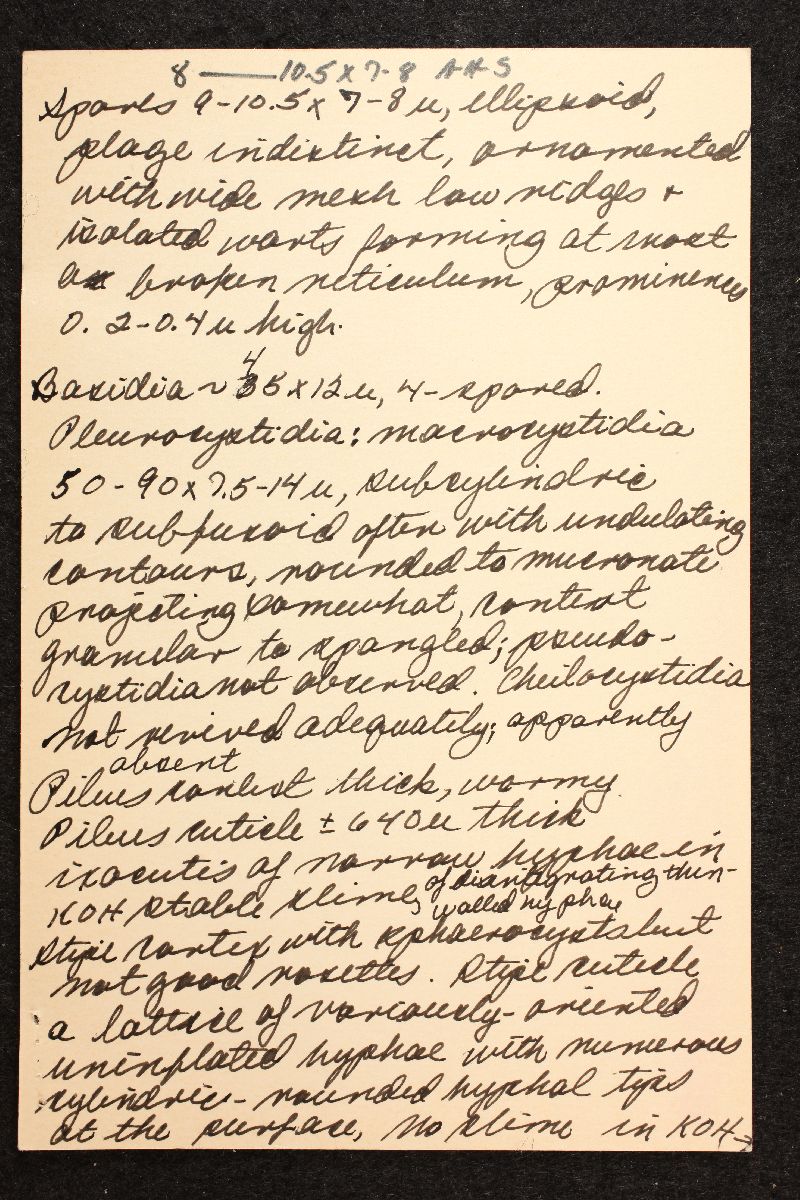 8 ——— 10.5 x 7-8 AHS
Spores 9-10.5 x 7-8 u, ellipsoid,
plage indistinct, ornamented
with wide mesh low ridges +
isolated warts forming at most
a broken reticulum, prominences
0.2-0.4 u high.
4
Basidia ~ 35 x 12 u, 4-spored.
Pleurocystidia: macrocystidia
50-90 x 7.5-14 u, subcylindric
to subfusoid often with undulating
contours, rounded to mucronate
projecting somewhat, content
granular to spangled; pseudo-
cystidia not observed. Cheilocystidia
not revived adequately; apparently
absent
Pileus context thick, wormy.
Pileus cuticle ± 640 u thick
ixocutis of narrow hyphae in
KOH stable slime, of disintegrating thin-
walled hyphae
Stipe cortex with sphaerocysts but
not good rosettes. Stipe cuticle
a lattice of variously-oriented
uninflated hyphae with numerous
cylindric-rounded hyphal tips
at the surface, no slime in KOH→